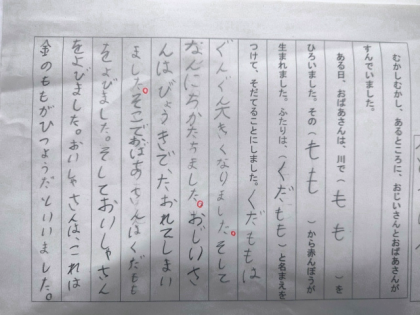 むかしむかし、あるところに、おじいさんとおばあさんが
すんでいました。
ある日、おばあさんは、川で（もも）を
ひろいました。その（もも）から赤んぼうが
生まれました。ふたりは、（くだもも）と名まえを
つけて、そだてることにしました。くだももは
ぐんぐん大きくなりました。そして
なんにちかたちました。おじいさ
んはびょうきで、たおれてしまい
ました。そこでおばあさんはくだもも
をよびました。そしておいしゃさん
をよびました。おいしゃさんは、これは
金のももがひつようだといいました。